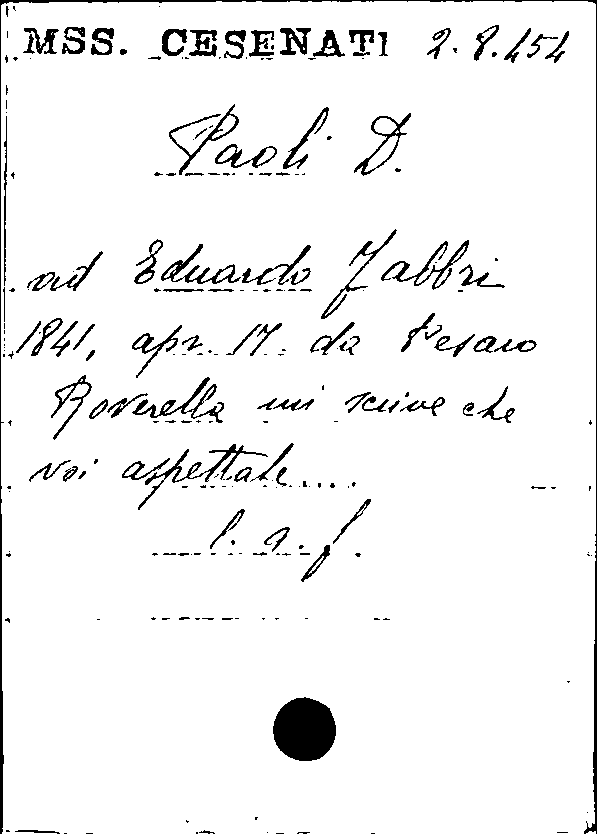 MSS. CESENATI 2.8.454
Paoli D.
ad Eduardo Fabbri
1841, apr. 17. da Pesaro
Roverella mi scrive che
voi aspettate....
l. a. f.